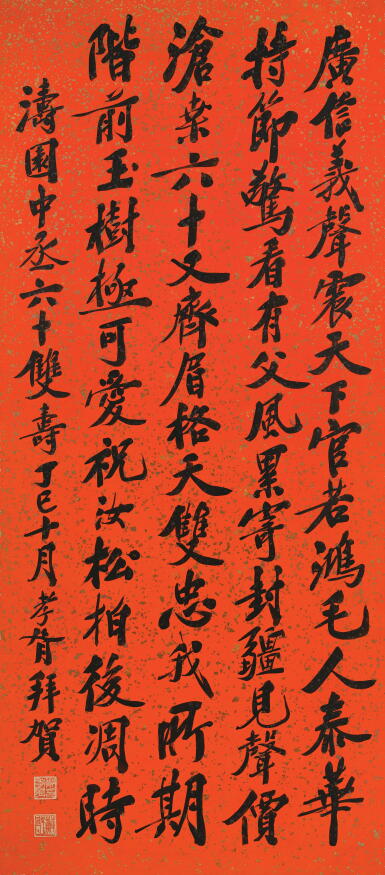 廣信義聲震天下官若鴻毛人泰華
持節驚看有父風累寄封疆見聲價
滄桑六十又齊眉格天雙忠我所期
階前玉樹極可愛祝汝松柏後凋時
濤園中丞六十雙壽丁巳十月孝胥拜賀